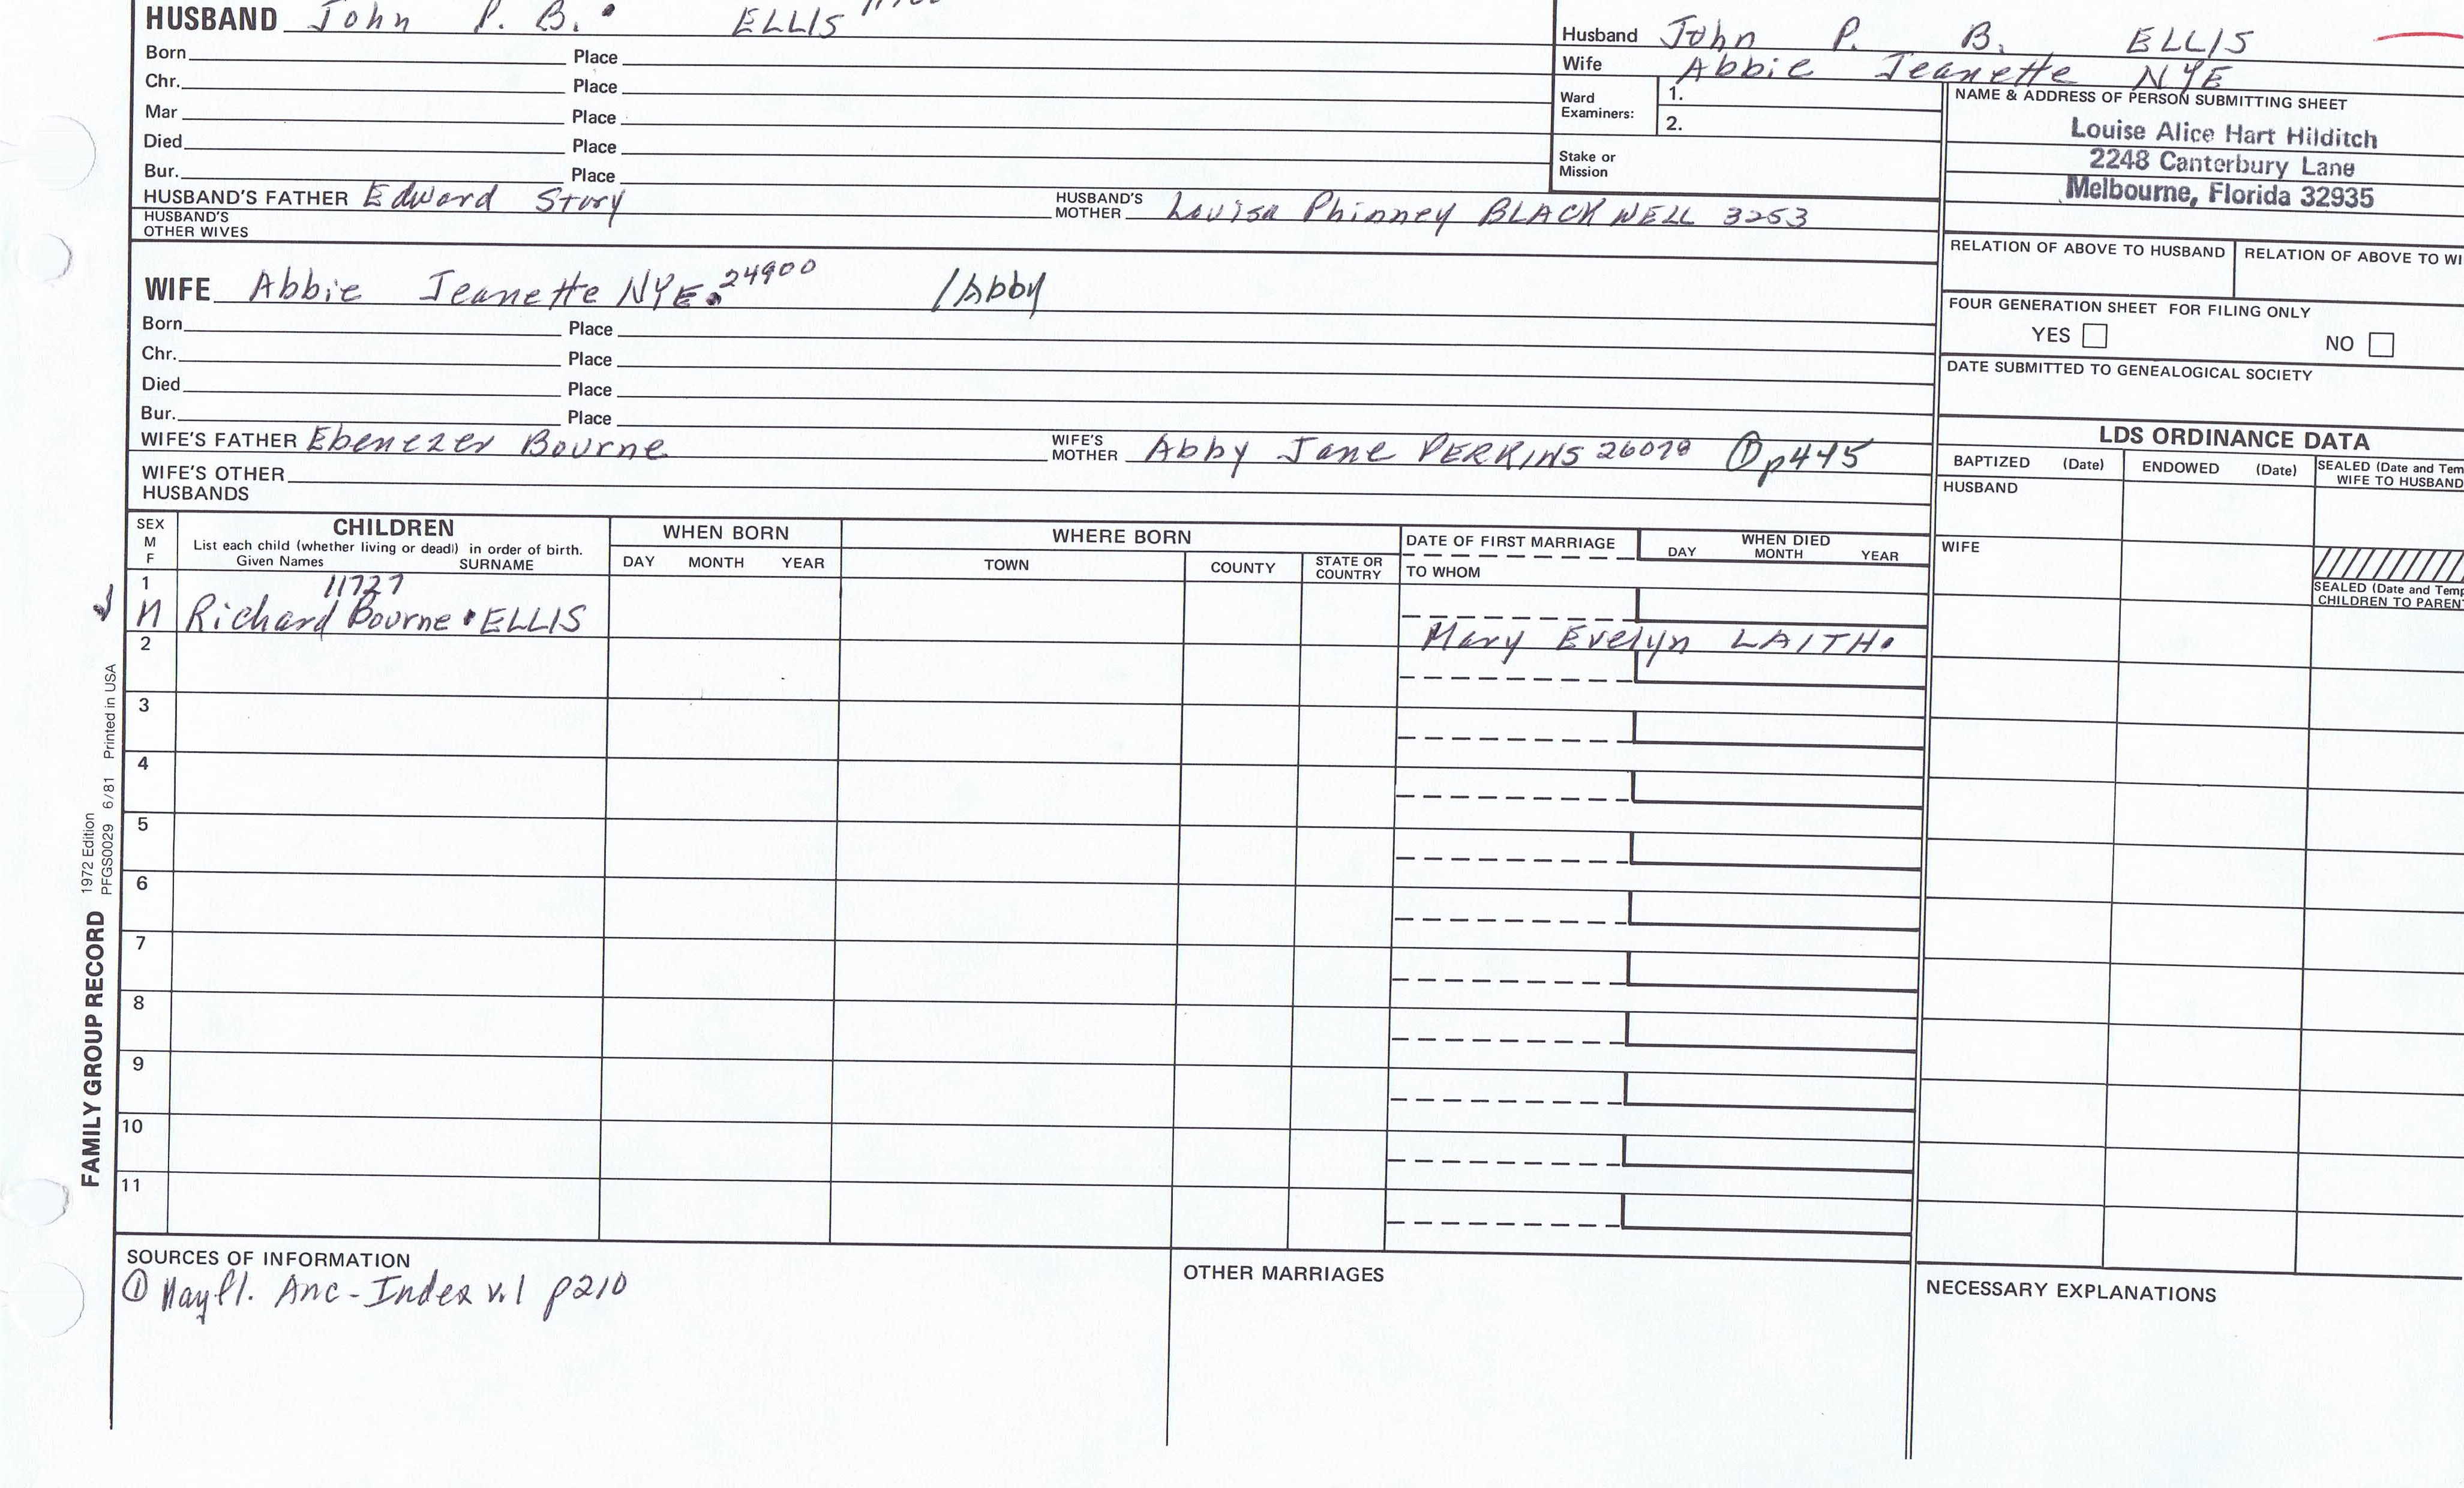 HUSBAND John P. B. ELLIS
Born Place
Chr. Place
Mar Place
Died Place
Bur. Place
HUSBAND'S FATHER Edward Story HUSBAND'S MOTHER Louisa Phinney BLACKWELL 3253
HUSBAND'S OTHER WIVES
Husband John P. B. ELLIS
Wife Abbie Jeanette NYE
Ward Examiners: 1.
2.
Stake or Mission
NAME & ADDRESS OF PERSON SUBMITTING SHEET
Louise Alice Hart Hilditch
2248 Canterbury Lane
Melbourne, Florida 32935
RELATION OF ABOVE TO HUSBAND RELATION OF ABOVE TO WI
FOUR GENERATION SHEET FOR FILING ONLY
YES NO
DATE SUBMITTED TO GENEALOGICAL SOCIETY
WIFE Abbie Jeanette NYE 24900 /Abby
Born Place
Chr. Place
Died Place
Bur. Place
WIFE'S FATHER Ebenezer Bourne WIFE'S MOTHER Abby Jane PERKINS 26078 ① p445
WIFE'S OTHER HUSBANDS
LDS ORDINANCE DATA
BAPTIZED (Date) ENDOWED (Date) SEALED (Date and Tem
WIFE TO HUSBAND
HUSBAND
WIFE
SEALED (Date and Temp
CHILDREN TO PAREN
SEX M F CHILDREN WHEN BORN WHERE BORN DATE OF FIRST MARRIAGE WHEN DIED
List each child (whether living or dead) in order of birth.
Given Names SURNAME DAY MONTH YEAR TOWN COUNTY STATE OR COUNTRY TO WHOM DAY MONTH YEAR
1 11727
M Richard Bourne ELLIS
Mary Evelyn LAITH
2
3
4
5
6
7
8
9
10
11
FAMILY GROUP RECORD 1972 Edition
PFGS0029 6/81 Printed in USA
SOURCES OF INFORMATION
① Mayfl. Anc-Index v.1 p210
OTHER MARRIAGES
NECESSARY EXPLANATIONS